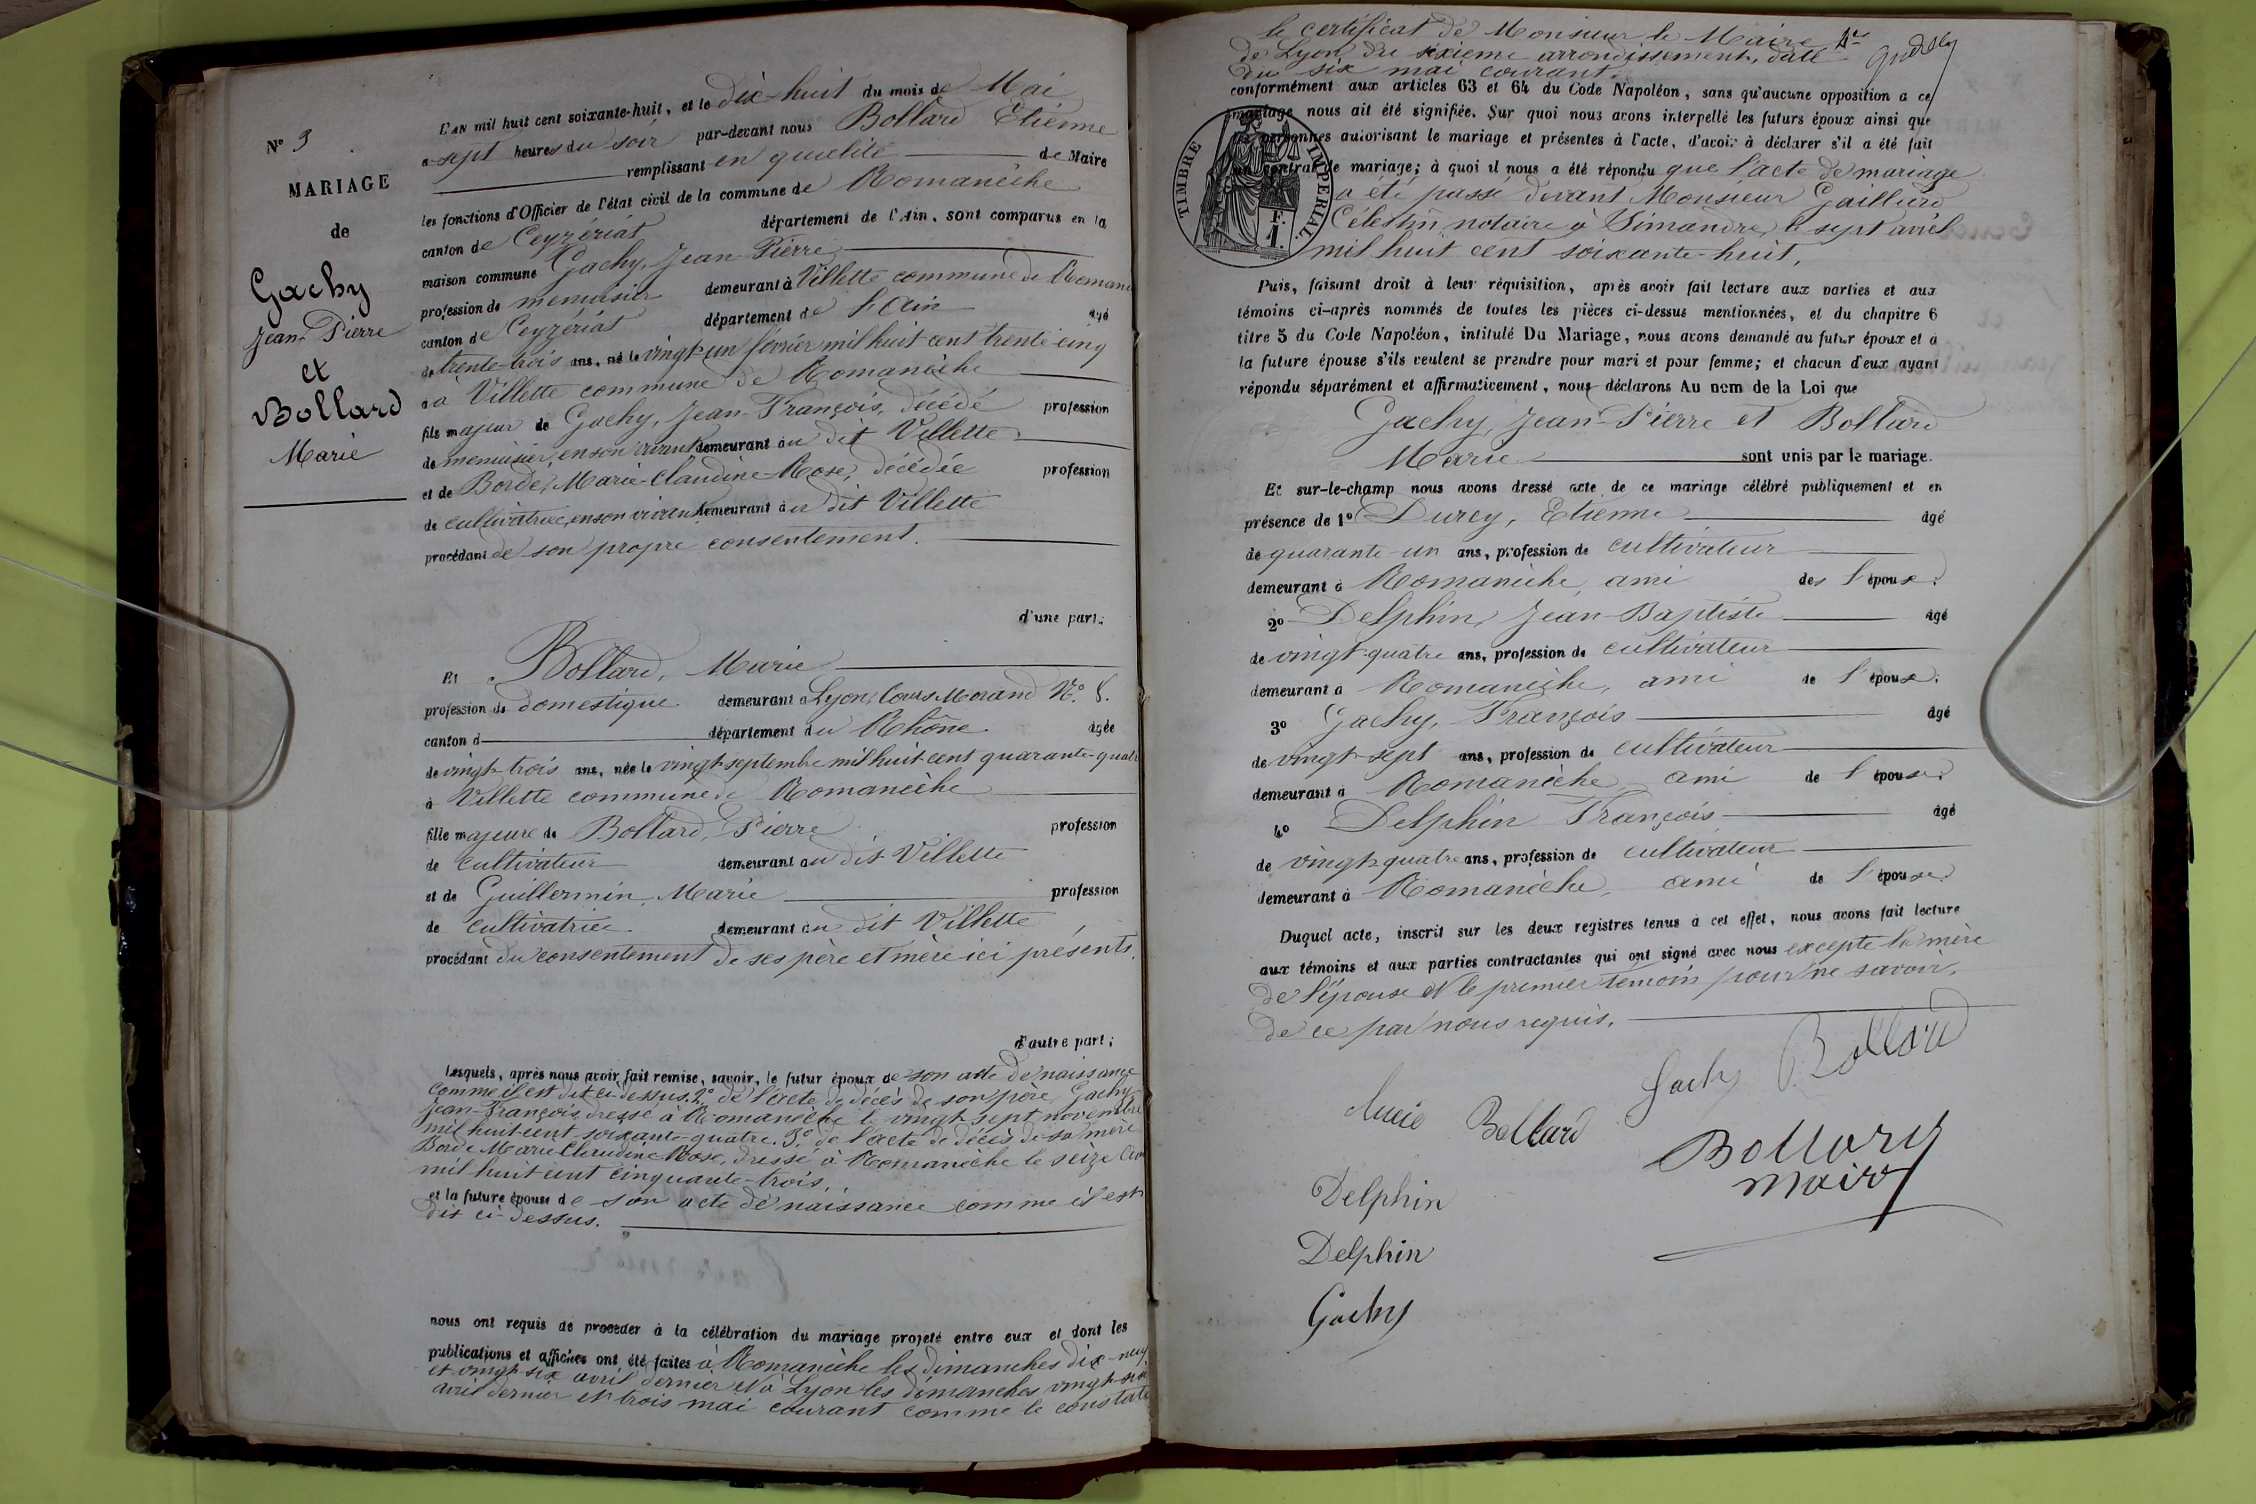 N° 3
MARIAGE
de
Gachy
Jean-Pierre
et
Bollard
Marie
L'AN mil huit cent soixante-huit, et le dix-huit du mois de Mai
à sept heures du soir par-devant nous Bollard Etienne
remplissant en qualité de Maire
les fonctions d'Officier de l'état civil de la commune de Romanèche
canton de Ceyzériat département de l'Ain, sont comparus en la
maison commune Gachy, Jean-Pierre
profession de menuisier demeurant à Villette commune de Romanè
canton de Ceyzériat département de l'Ain âgé
de trente-trois ans, né le vingt-un février mil huit cent trente-cinq
à à Villette commune de Romanèche
fils majeur de Gachy, Jean-François, décédé profession
de menuisier, en son vivant demeurant au dit Villette
et de Borde, Marie-Claudine-Rose, décédée profession
de cultivatrice, en son vivant demeurant au dit Villette
procédant de son propre consentement.
d'une part;
Et Bollard, Marie
profession de domestique demeurant à Lyon, Cours Morand N° 8.
canton d département du Rhône âgée
de vingt-trois ans, née le vingt septembre mil huit cent quarante-quatre
à Villette commune de Romanèche
fille majeure de Bollard, Pierre profession
de cultivateur demeurant au dit Villette
et de Guillermin, Marie profession
de cultivatrice demeurant au dit Villette
procédant du consentement de ses père et mère ici présents.
d'autre part;
Lesquels, après nous avoir fait remise, savoir, le futur époux de son acte de naissance
comme il est dit ci-dessus. 2° de l'acte de décès de son père, Gachy,
Jean-François, dressé à Romanèche le vingt-sept novembre
mil huit cent soixante-quatre. 3° de l'acte de décès de sa mère
Borde Marie Claudine Rose, dressé à Romanèche le seize
mil huit cent cinquante-trois,
et la future épouse de son acte de naissance comme il est
dit ci-dessus.
nous ont requis de procéder à la célébration du mariage projeté entre eux et dont les
publications et affiches ont été faites à Romanèche les dimanches dix-neuf
et vingt-six avril dernier et à Lyon les dimanches vingt-six
avril dernier et trois mai courant comme le constate
le certificat de Monsieur le Maire
de Lyon du sixième arrondissement, daté
du six mai courant.
conformément aux articles 63 et 64 du Code Napoléon, sans qu'aucune opposition à ce
mariage nous ait été signifiée. Sur quoi nous avons interpellé les futurs époux ainsi que
les personnes autorisant le mariage et présentes à l'acte, d'avoir à déclarer s'il a été fait
un contrat de mariage; à quoi il nous a été répondu que l'acte de mariage
a été passé devant Monsieur Gaillard
Célestin, notaire à Simandre, le sept avril
mil huit cent soixante-huit.
TIMBRE IMPERIAL
F.
1.
Puis, faisant droit à leur réquisition, après avoir fait lecture aux parties et aux
témoins ci-après nommés de toutes les pièces ci-dessus mentionnées, et du chapitre 6
titre 5 du Code Napoléon, intitulé Du Mariage, nous avons demandé au futur époux et à
la future épouse s'ils veulent se prendre pour mari et pour femme; et chacun d'eux ayant
répondu séparément et affirmativement, nous déclarons Au nom de la Loi que
Gachy, Jean-Pierre et Bollard
Marie sont unis par le mariage.
Et sur-le-champ nous avons dressé acte de ce mariage célébré publiquement et en
présence de 1° Durcy, Etienne âgé
de quarante-un ans, profession de cultivateur
demeurant à Romanèche, ami des l'épouse.
2° Delphin, Jean-Baptiste âgé
de vingt-quatre ans, profession de cultivateur
demeurant à Romanèche, ami de l'épouse.
3° Gachy, François âgé
de vingt-sept ans, profession de cultivateur
demeurant à Romanèche, ami de l'épouse.
4° Delphin François âgé
de vingt-quatre ans, profession de cultivateur
demeurant à Romanèche, ami de l'épouse.
Duquel acte, inscrit sur les deux registres tenus à cet effet, nous avons fait lecture
aux témoins et aux parties contractantes qui ont signé avec nous excepté la mère
de l'épouse et le premier témoin pour ne savoir,
de ce par nous requis.
Gachy Bollard
Marie Bollard
Bollard
maire
Delphin
Delphin
Gachy